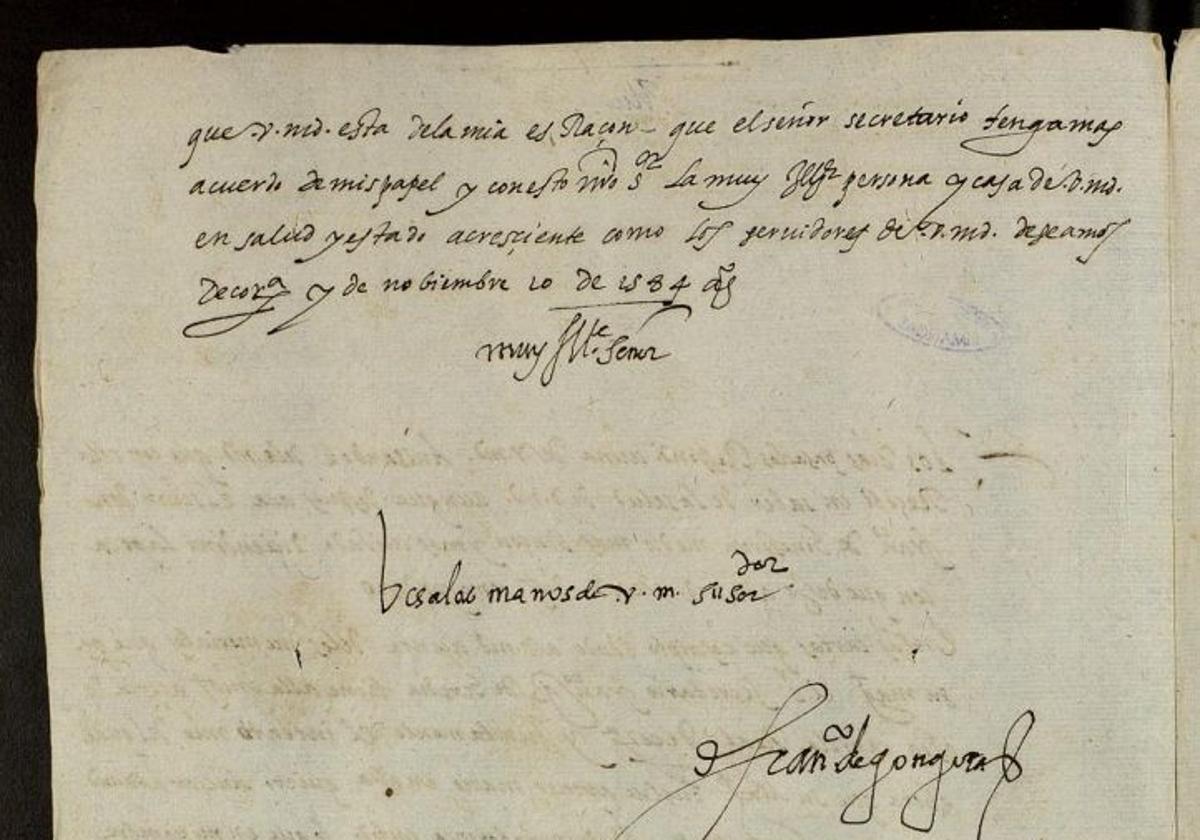 que v. md. esta dela mia es Raçon que el señor secretario tenga mas
acuerdo de mis papel y con esto nr̃o sr la muy Illtr persona y casa de v. md.
en salud y estado acresçiente como los seruidores de v. md. deseamos
de cora y de nobiembre 10 de 1584 as
muy Ille. señor
besa las manos de v. m. su sordor
don franco de gongora